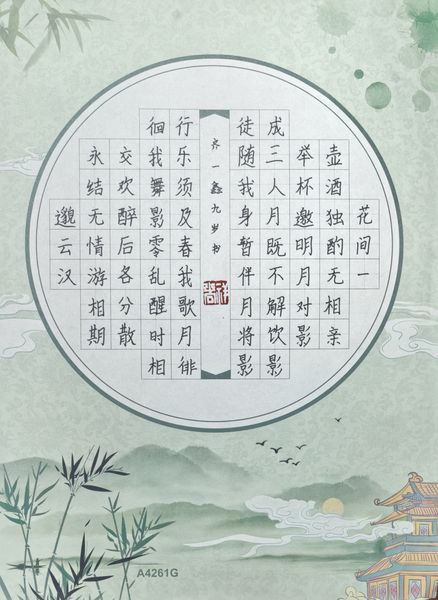 花间一
壶酒独酌无相亲
举杯邀明月对影
成三人月既不解饮影
徒随我身暂伴月将影
齐一鑫九岁书
行乐须及春我歌月徘
徊我舞影零乱醒时相
交欢醉后各分散
永结无情游相期
邈云汉
A4261G